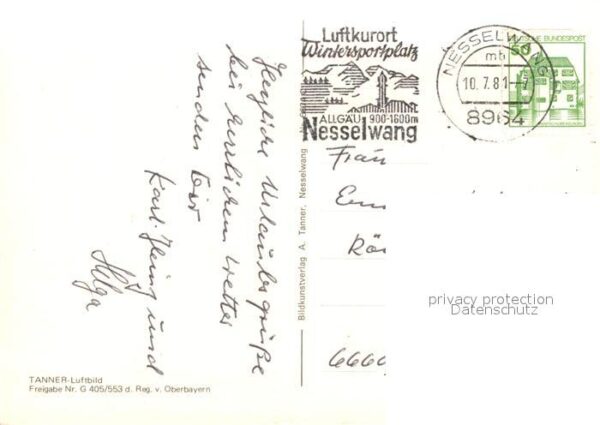 Luftkurort
Wintersportplatz
ALLGÄU 900-1600m
Nesselwang
NESSELWANG
mb
10.7.81-7
8964
50
DEUTSCHE BUNDESPOST
Herzliche Urlaubsgrüße
bei herrlichem Wetter
senden Dir
Karl-Heinz und
Helga
Bildkunstverlag A. Tanner, Nesselwang
Frau
privacy protection
Datenschutz
666
TANNER-Luftbild
Freigabe Nr. G 405/553 d. Reg. v. Oberbayern